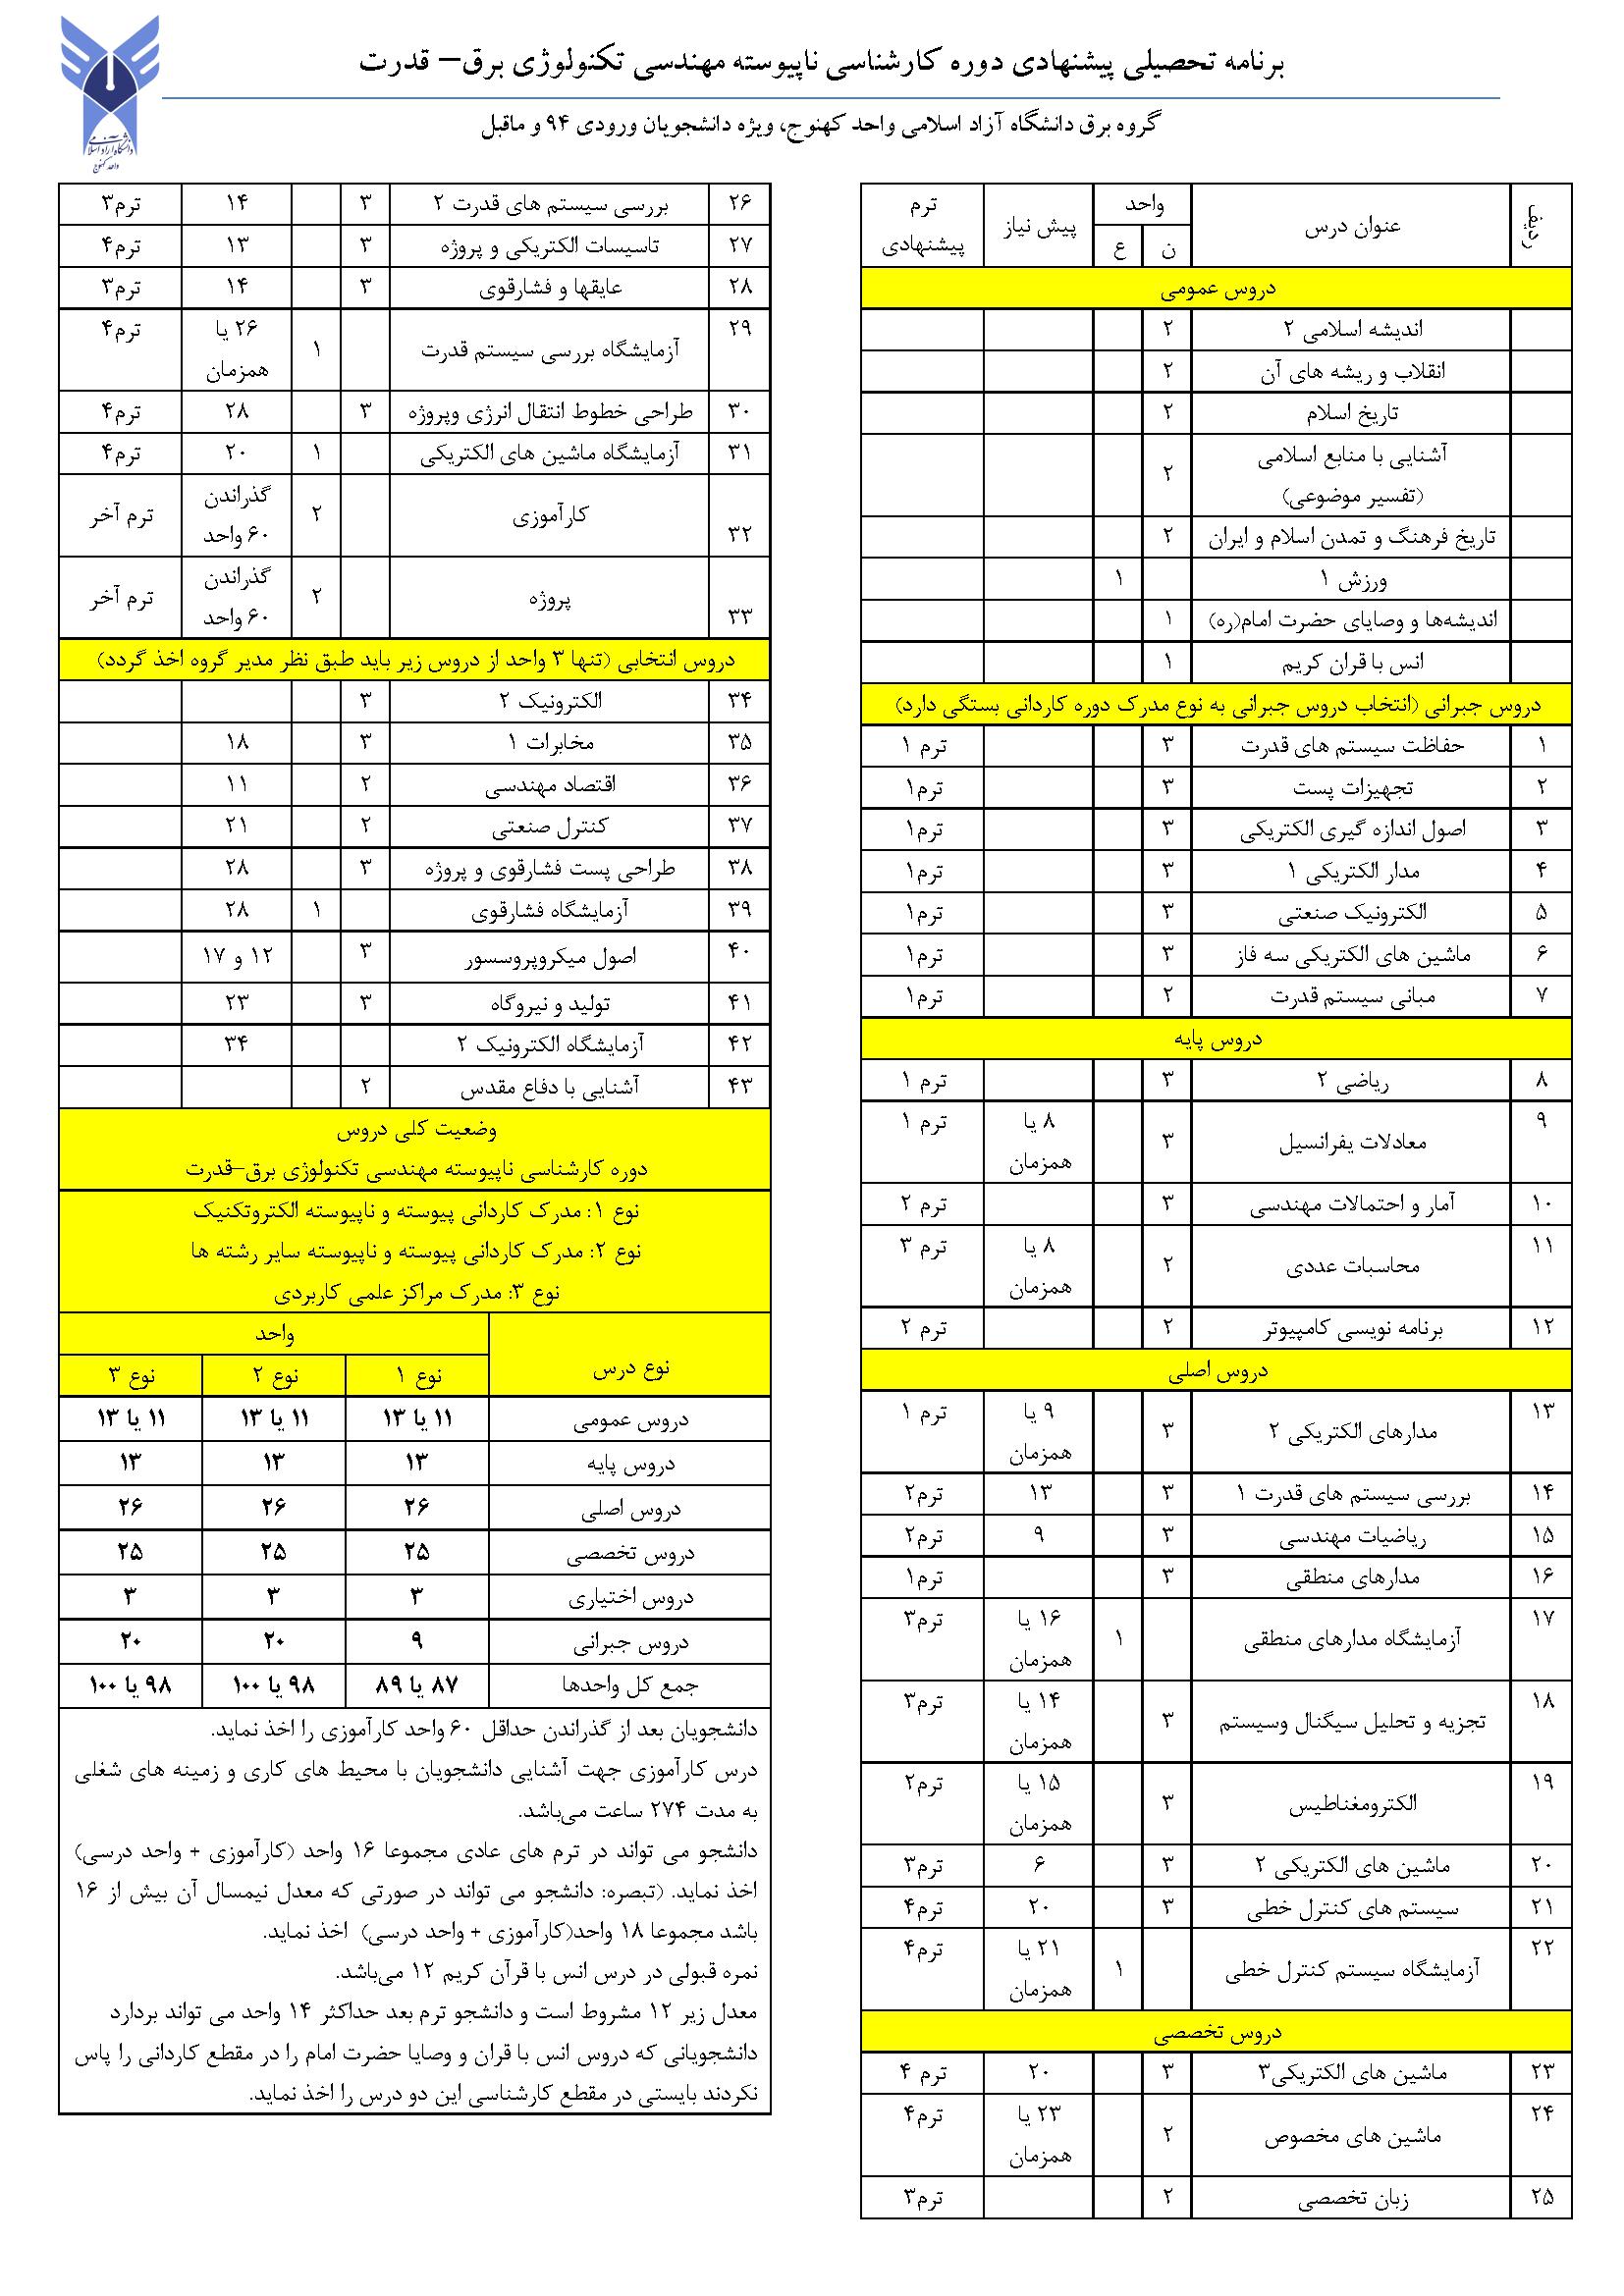 برنامه تحصیلی پیشنهادی دوره کارشناسی ناپیوسته مهندسی تکنولوژی برق– قدرت
گروه برق دانشگاه آزاد اسلامی واحد کهنوج، ویژه دانشجویان ورودی ۹۴ و ماقبل
دانشگاه آزاد اسلامی
واحد کهنوج
ردیف عنوان درس واحد پیش نیاز ترم پیشنهادی
ن ع
دروس عمومی
اندیشه اسلامی ۲ ۲
انقلاب و ریشه های آن ۲
تاریخ اسلام ۲
آشنایی با منابع اسلامی
(تفسیر موضوعی) ۲
تاریخ فرهنگ و تمدن اسلام و ایران ۲
ورزش ۱ ۱
اندیشه‌ها و وصایای حضرت امام(ره) ۱
انس با قران کریم ۱
دروس جبرانی (انتخاب دروس جبرانی به نوع مدرک دوره کاردانی بستگی دارد)
۱ حفاظت سیستم های قدرت ۳ ترم ۱
۲ تجهیزات پست ۳ ترم۱
۳ اصول اندازه گیری الکتریکی ۳ ترم۱
۴ مدار الکتریکی ۱ ۳ ترم۱
۵ الکترونیک صنعتی ۳ ترم۱
۶ ماشین های الکتریکی سه فاز ۳ ترم۱
۷ مبانی سیستم قدرت ۲ ترم۱
دروس پایه
۸ ریاضی ۲ ۳ ترم ۱
۹ معادلات یفرانسیل ۳ ۸ یا همزمان ترم ۱
۱۰ آمار و احتمالات مهندسی ۳ ترم ۲
۱۱ محاسبات عددی ۲ ۸ یا همزمان ترم ۳
۱۲ برنامه نویسی کامپیوتر ۲ ترم ۲
دروس اصلی
۱۳ مدارهای الکتریکی ۲ ۳ ۹ یا همزمان ترم ۱
۱۴ بررسی سیستم های قدرت ۱ ۳ ۱۳ ترم۲
۱۵ ریاضیات مهندسی ۳ ۹ ترم۲
۱۶ مدارهای منطقی ۳ ترم۱
۱۷ آزمایشگاه مدارهای منطقی ۱ ۱۶ یا همزمان ترم۳
۱۸ تجزیه و تحلیل سیگنال وسیستم ۳ ۱۴ یا همزمان ترم۳
۱۹ الکترومغناطیس ۳ ۱۵ یا همزمان ترم۲
۲۰ ماشین های الکتریکی ۲ ۳ ۶ ترم۳
۲۱ سیستم های کنترل خطی ۳ ۲۰ ترم۴
۲۲ آزمایشگاه سیستم کنترل خطی ۱ ۲۱ یا همزمان ترم۴
دروس تخصصی
۲۳ ماشین های الکتریکی۳ ۳ ۲۰ ترم ۴
۲۴ ماشین های مخصوص ۲ ۲۳ یا همزمان ترم۴
۲۵ زبان تخصصی ۲ ترم۳
۲۶ بررسی سیستم های قدرت ۲ ۳ ۱۴ ترم۳
۲۷ تاسیسات الکتریکی و پروژه ۳ ۱۳ ترم۴
۲۸ عایقها و فشارقوی ۳ ۱۴ ترم۳
۲۹ آزمایشگاه بررسی سیستم قدرت ۱ ۲۶ یا همزمان ترم۴
۳۰ طراحی خطوط انتقال انرژی وپروژه ۳ ۲۸ ترم۴
۳۱ آزمایشگاه ماشین های الکتریکی ۱ ۲۰ ترم۴
۳۲ کارآموزی ۲ گذراندن ۶۰ واحد ترم آخر
۳۳ پروژه ۲ گذراندن ۶۰ واحد ترم آخر
دروس انتخابی (تنها ۳ واحد از دروس زیر باید طبق نظر مدیر گروه اخذ گردد)
۳۴ الکترونیک ۲ ۳
۳۵ مخابرات ۱ ۳ ۱۸
۳۶ اقتصاد مهندسی ۲ ۱۱
۳۷ کنترل صنعتی ۲ ۲۱
۳۸ طراحی پست فشارقوی و پروژه ۳ ۲۸
۳۹ آزمایشگاه فشارقوی ۱ ۲۸
۴۰ اصول میکروپروسسور ۳ ۱۲ و ۱۷
۴۱ تولید و نیروگاه ۳ ۲۳
۴۲ آزمایشگاه الکترونیک ۲ ۳۴
۴۳ آشنایی با دفاع مقدس ۲
وضعیت کلی دروس
دوره کارشناسی ناپیوسته مهندسی تکنولوژی برق–قدرت
نوع ۱: مدرک کاردانی پیوسته و ناپیوسته الکتروتکنیک
نوع ۲: مدرک کاردانی پیوسته و ناپیوسته سایر رشته ها
نوع ۳: مدرک مراکز علمی کاربردی
نوع درس واحد
نوع ۱ نوع ۲ نوع ۳
دروس عمومی ۱۱ یا ۱۳ ۱۱ یا ۱۳ ۱۱ یا ۱۳
دروس پایه ۱۳ ۱۳ ۱۳
دروس اصلی ۲۶ ۲۶ ۲۶
دروس تخصصی ۲۵ ۲۵ ۲۵
دروس اختیاری ۳ ۳ ۳
دروس جبرانی ۹ ۲۰ ۲۰
جمع کل واحدها ۸۷ یا ۸۹ ۹۸ یا ۱۰۰ ۹۸ یا ۱۰۰
دانشجویان بعد از گذراندن حداقل ۶۰ واحد کارآموزی را اخذ نماید.
درس کارآموزی جهت آشنایی دانشجویان با محیط های کاری و زمینه های شغلی
به مدت ۲۷۴ ساعت می‌باشد.
دانشجو می تواند در ترم های عادی مجموعا ۱۶ واحد (کارآموزی + واحد درسی)
اخذ نماید. (تبصره: دانشجو می تواند در صورتی که معدل نیمسال آن بیش از ۱۶
باشد مجموعا ۱۸ واحد(کارآموزی + واحد درسی) اخذ نماید.
نمره قبولی در درس انس با قرآن کریم ۱۲ می‌باشد.
معدل زیر ۱۲ مشروط است و دانشجو ترم بعد حداکثر ۱۴ واحد می تواند بردارد
دانشجویانی که دروس انس با قران و وصایا حضرت امام را در مقطع کاردانی را پاس
نکردند بایستی در مقطع کارشناسی این دو درس را اخذ نماید.